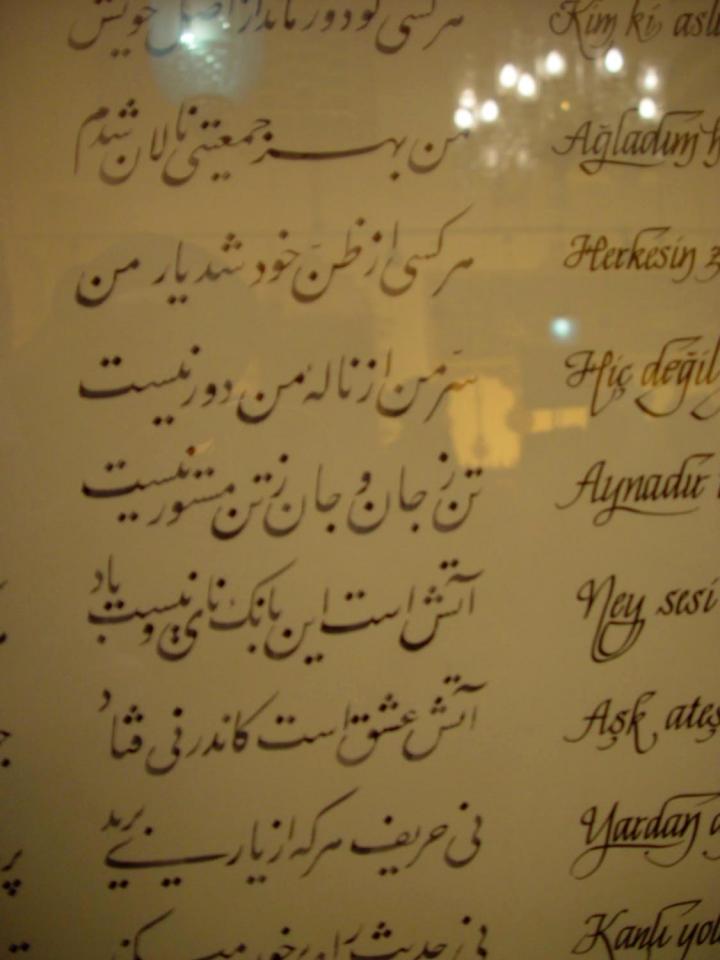 هر کسی کو دور ماند از اصل خویش
من بهر جمعیتی نالان شدم
هر کسی از ظنّ خود شد یار من
سرّ من از نالهٔ من دور نیست
تن ز جان و جان ز تن مستور نیست
آتش است این بانگ نای و نیست باد
آتش عشق است کاندر نی فتاد
نی حریف هر که از یاری برید
نی حدیث راه پر خون میکند
Kim ki aslı
Ağladım
Herkesin
Hiç değil
Aynadır
Ney sesi
Aşk, ateş
Yardan
Kanlı yol